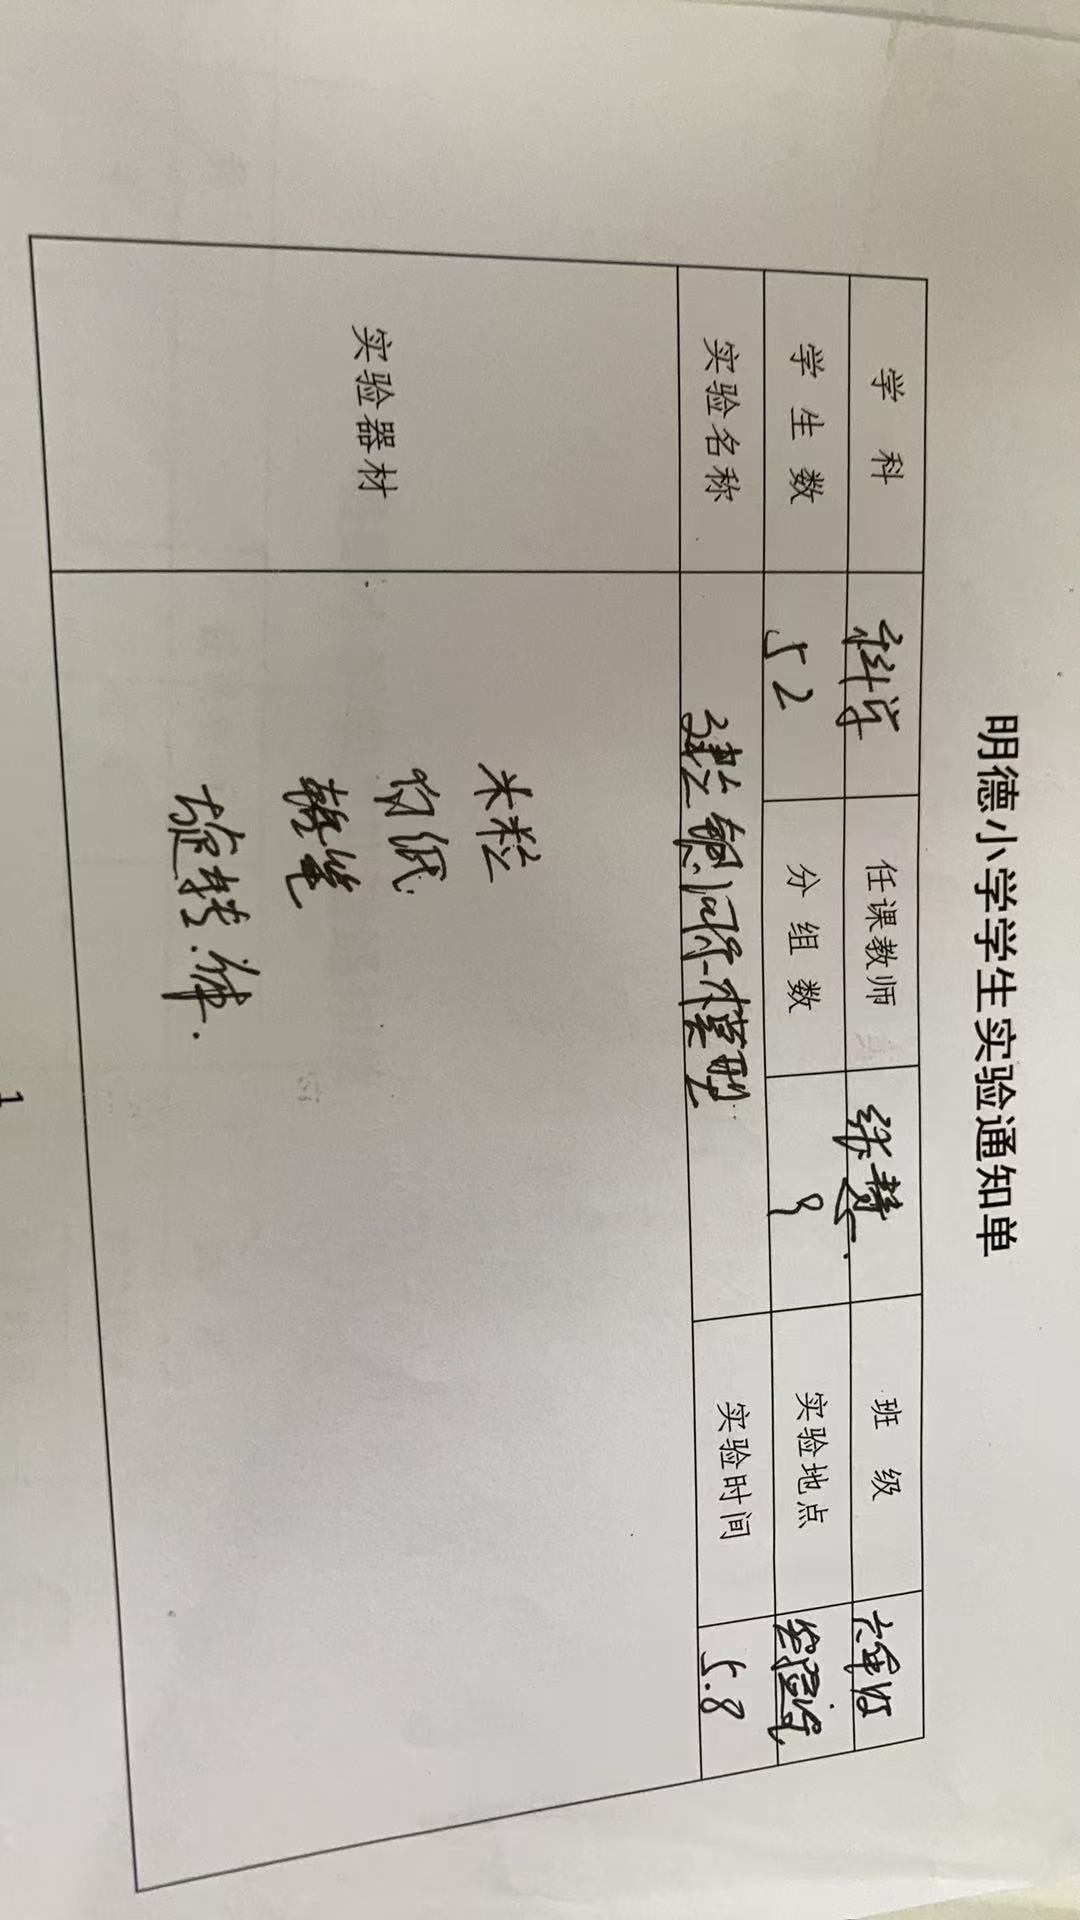 明德小学学生实验通知单
学 科 科学 任课教师 张慧 班 级 六年级
学 生 数 52 分 组 数 8 实验地点 实验室
实验名称 建立银河系模型 实验时间 5.8
实验器材
米粒
白纸
铅笔
旋转.体.
1